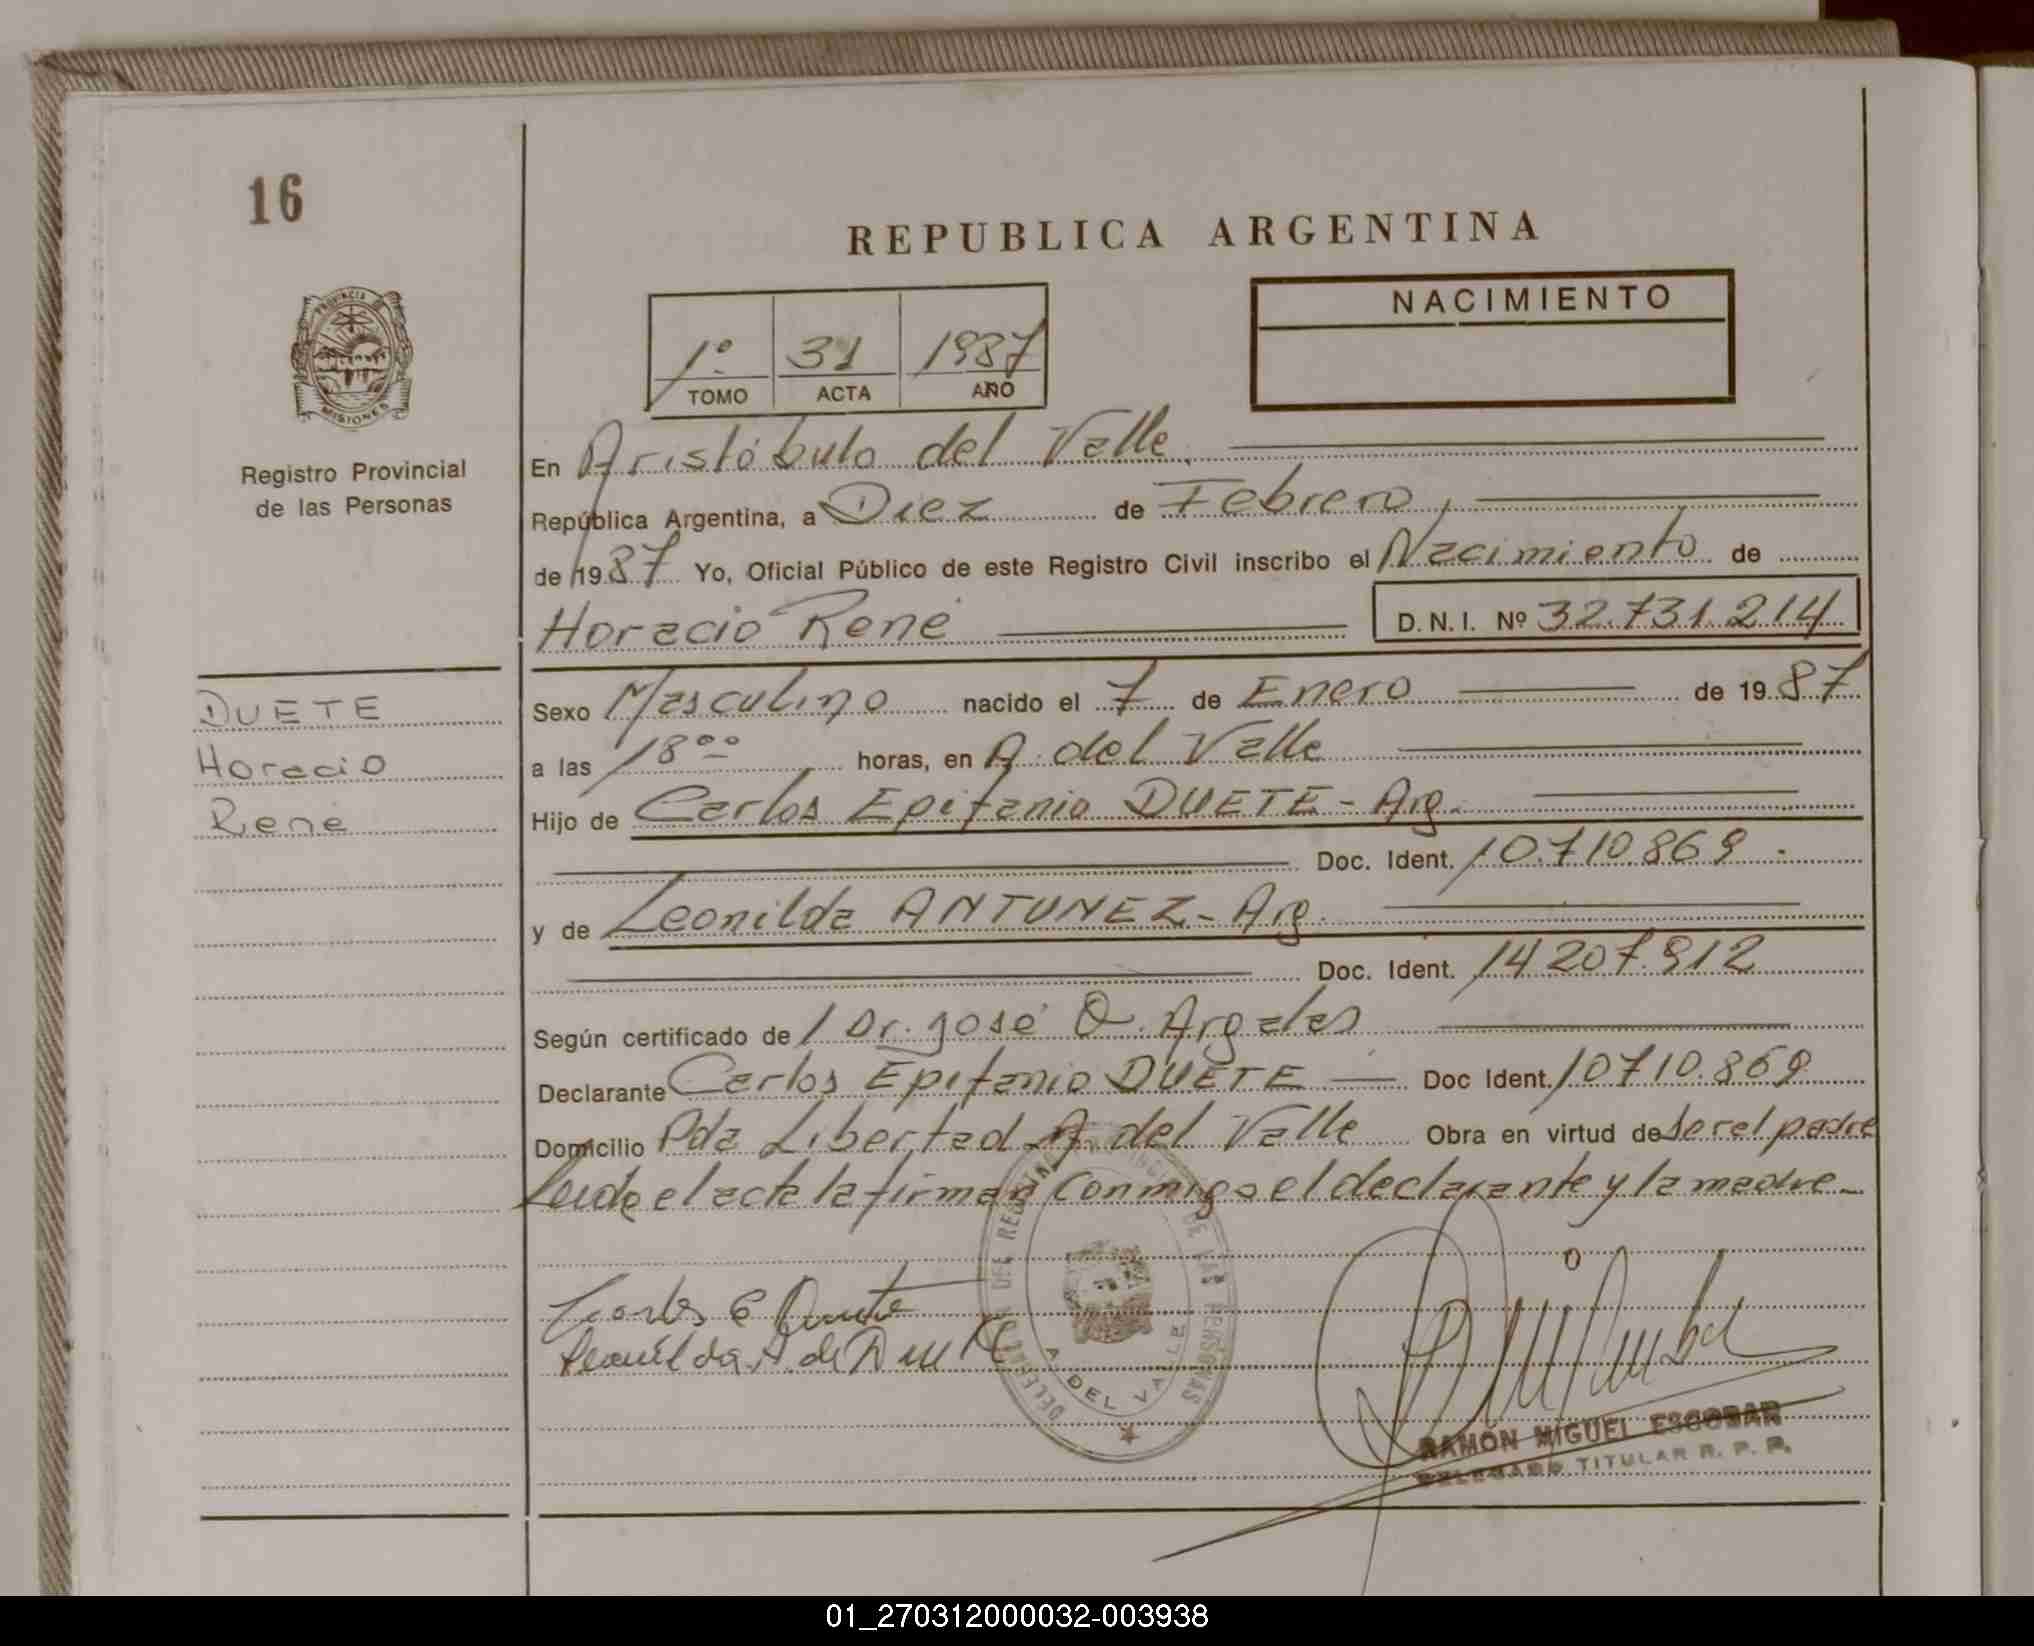 16
REPUBLICA ARGENTINA
PROVINCIA DE
MISIONES
Registro Provincial
de las Personas
NACIMIENTO
1º 31 1987
TOMO ACTA AÑO
En Aristóbulo del Valle
República Argentina, a Diez de Febrero,
de 1987 Yo, Oficial Público de este Registro Civil inscribo el Nacimiento de
Horacio René D.N.I. Nº 32.731.214
DUETE
Horacio
René
Sexo Masculino nacido el 7 de Enero de 1987
a las 18°° horas, en A. del Valle
Hijo de Carlos Epifanio DUETE - Arg.
Doc. Ident. 10.710.869.
y de Leonilda ANTUNEZ - Arg.
Doc. Ident. 14.207.912
Según certificado de Dr. José O. Argales
Declarante Carlos Epifanio DUETE — Doc Ident. 10710.869
Domicilio Pda Libertad A. del Valle Obra en virtud de ser el padre
Leida el acta la firman conmigo el declarante y la madre
Carlos E Duete
Leonilda A. de Duete
A. DEL VALLE
RAMON MIGUEL ESCOBAR
DELEGADO TITULAR R. P. P.
01_270312000032-003938